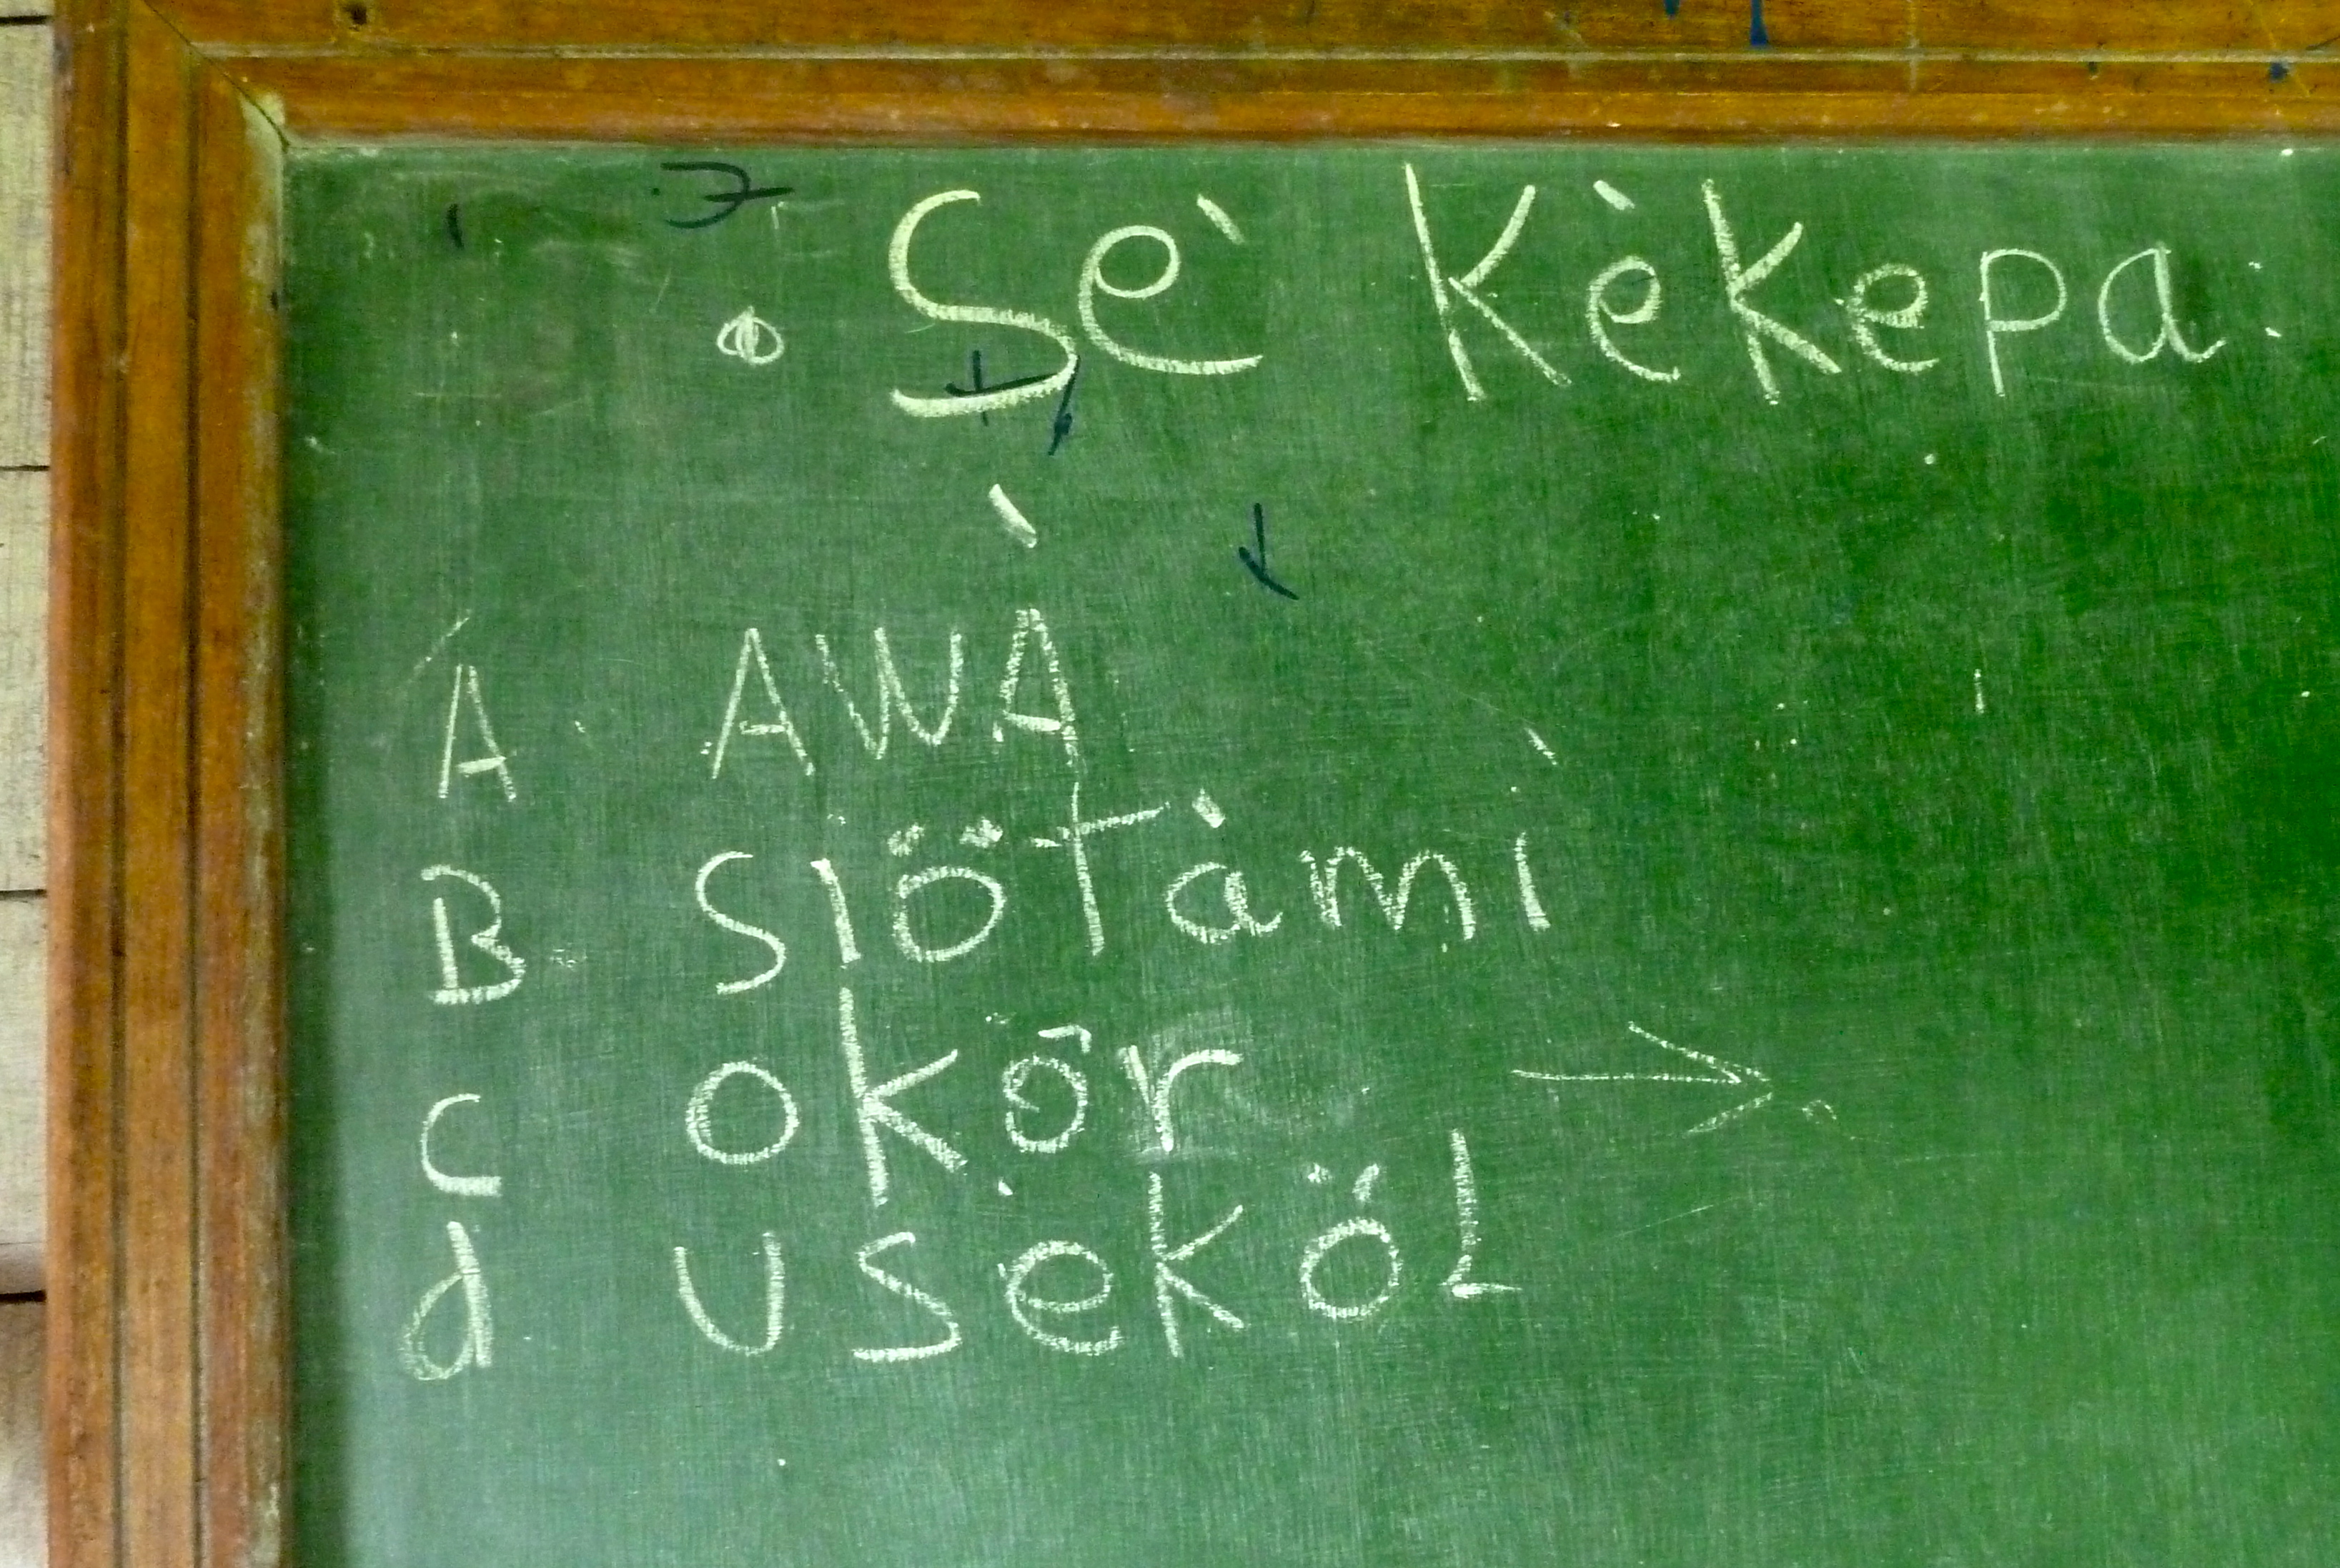 Sè Kèkepa
A AWÀ
B Siötàmì
C Okör
d Usekö L